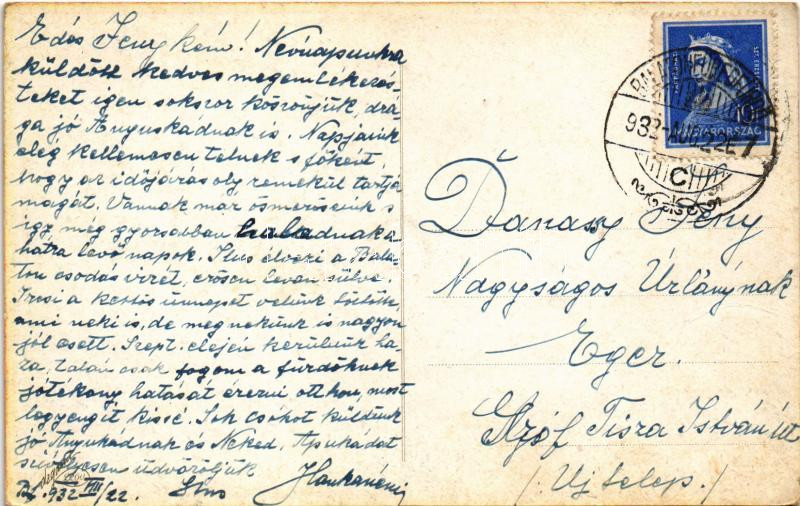 Édes Jeny kém! Nevünapunkra
küldött kedves megemlékezés-
teket igen sokszor köszönjük, drá-
ga jó Anyuskádnak is. Napjaink
elég kellemesen telnek s főként,
hogy az időjárás oly remekül tartja
magát. Vannak már ösmerőseink s
így még gyorsabban haladnak a
hátra levő napok. Stus élvezi a Bala-
ton csodás vizét, erősen le van sülve.
a kettős ünnepet velünk töltötte,
ami neki is, de meg nekünk is nagyon
jól esett. Szept. elején kerülünk ha-
za, talán csak fogom a fürdőknek
jótékony hatását érezni otthon, most
legyengít kissé. Sok csókot küldünk
jó Anyukádnak és Neked, Apukádat
szívélyesen üdvözöljük
932 VIII/22. Stus Hankanéni
10
MAGYARORSZÁG
932 AUG 22
C
Danassy Jeny
Nagyságos Úrlánynak
Eger.
Gróf Tisza István út
/Ujtelep./